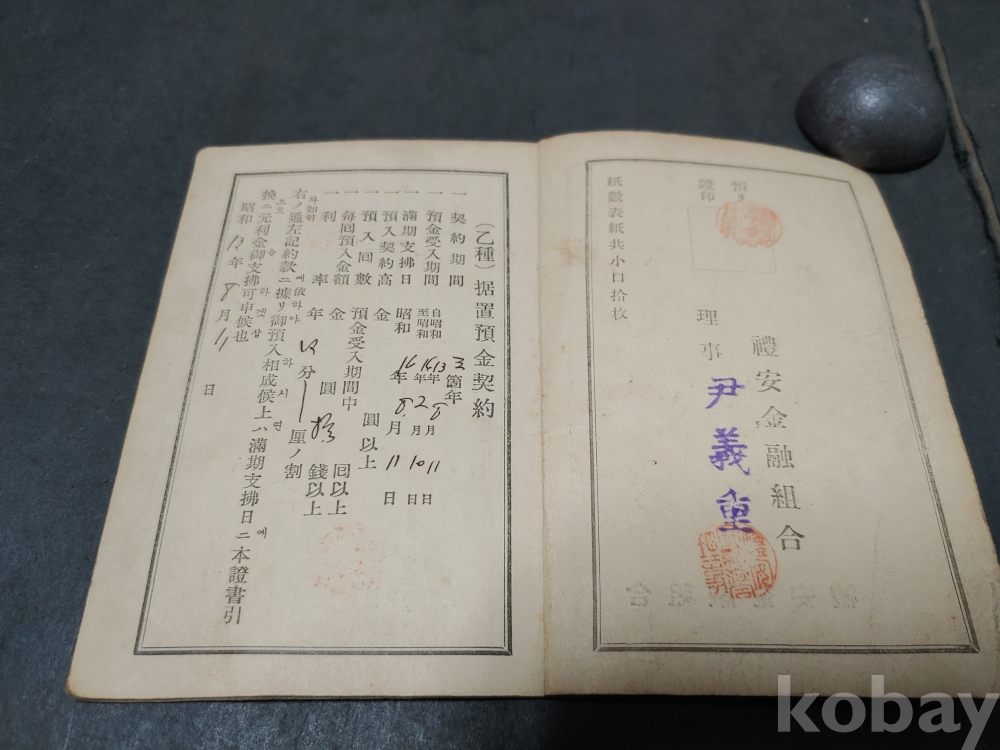 預リ
證印
禮安金融組合
理事 尹義重
紙數表紙共小口拾枚
(乙種)据置預金契約
一 契約期間 3箇年
一 預金受入期間 自昭和13年8月11日 至昭和16年2月10日
一 滿期支拂日 昭和16年8月11日
一 預入契約高 金 圓以上
一 預入回數 預金受入期間中 回以上
一 每回預入金額 金 圓拾錢以上
一 利率 年 分 厘ノ割
右ノ通左記約款ニ據リ御預入相成候上ハ滿期支拂日ニ本證書引
換ニ元利金御支拂可申候也
昭和13年8月11日
kobay